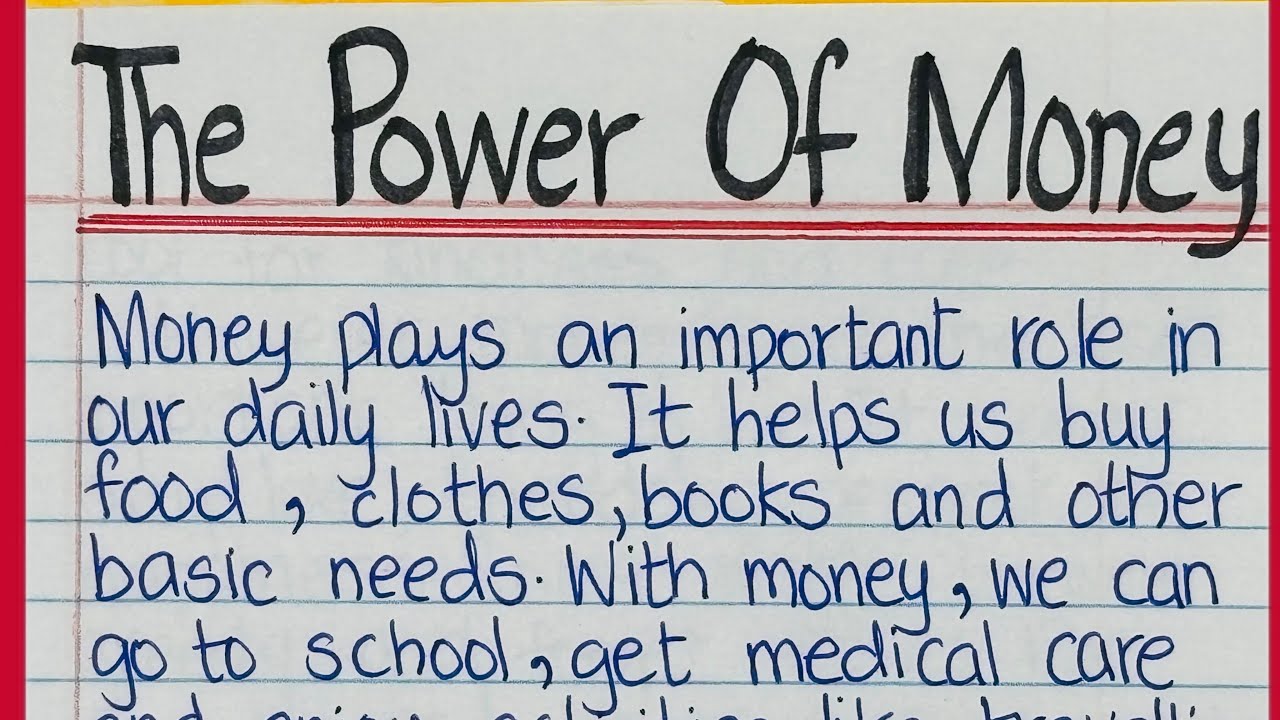 The Power Of Money
Money plays an important role in
our daily lives. It helps us buy
food, clothes, books and other
basic needs. With money, we can
go to school, get medical care
and enjoy activities like